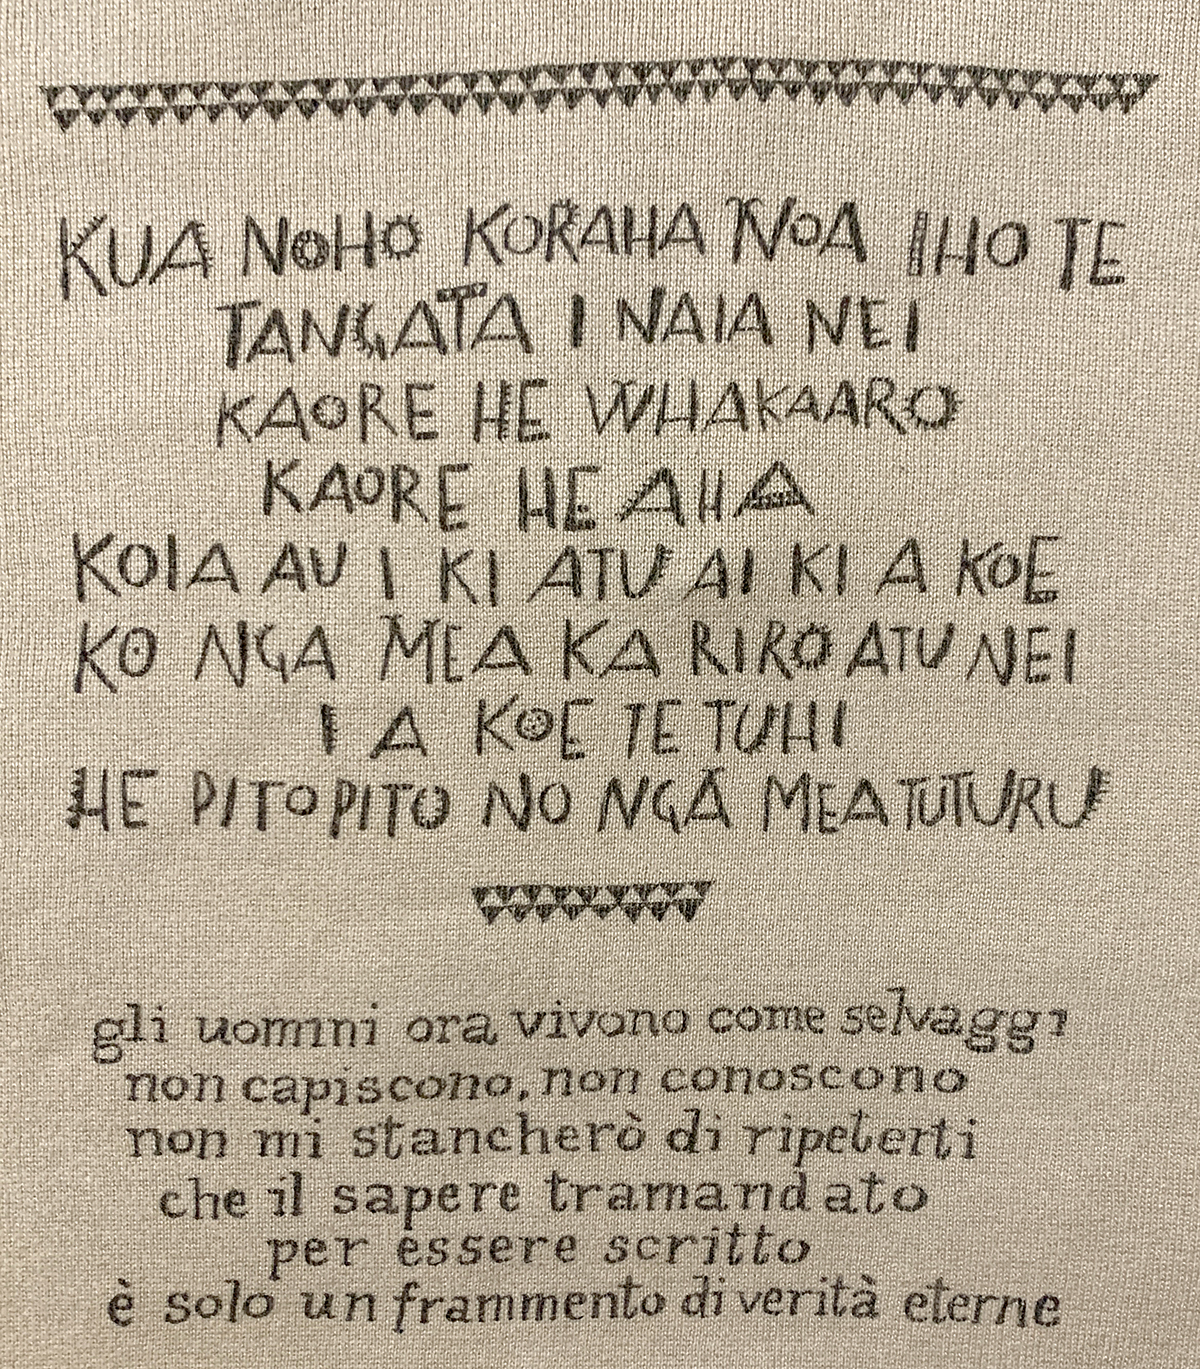 KUA NOHO KORAHA NOA IHO TE
TANGATA I NAIA NEI
KAORE HE WHAKAARO
KAORE HE AHA
KOIA AU I KI ATU AI KI A KOE
KO NGA MEA KA RIRO ATU NEI
I A KOE TE TUHI
HE PITOPITO NO NGA MEA TUTURU
gli uomini ora vivono come selvaggi
non capiscono, non conoscono
non mi stancherò di ripeterti
che il sapere tramandato
per essere scritto
è solo un frammento di verità eterne